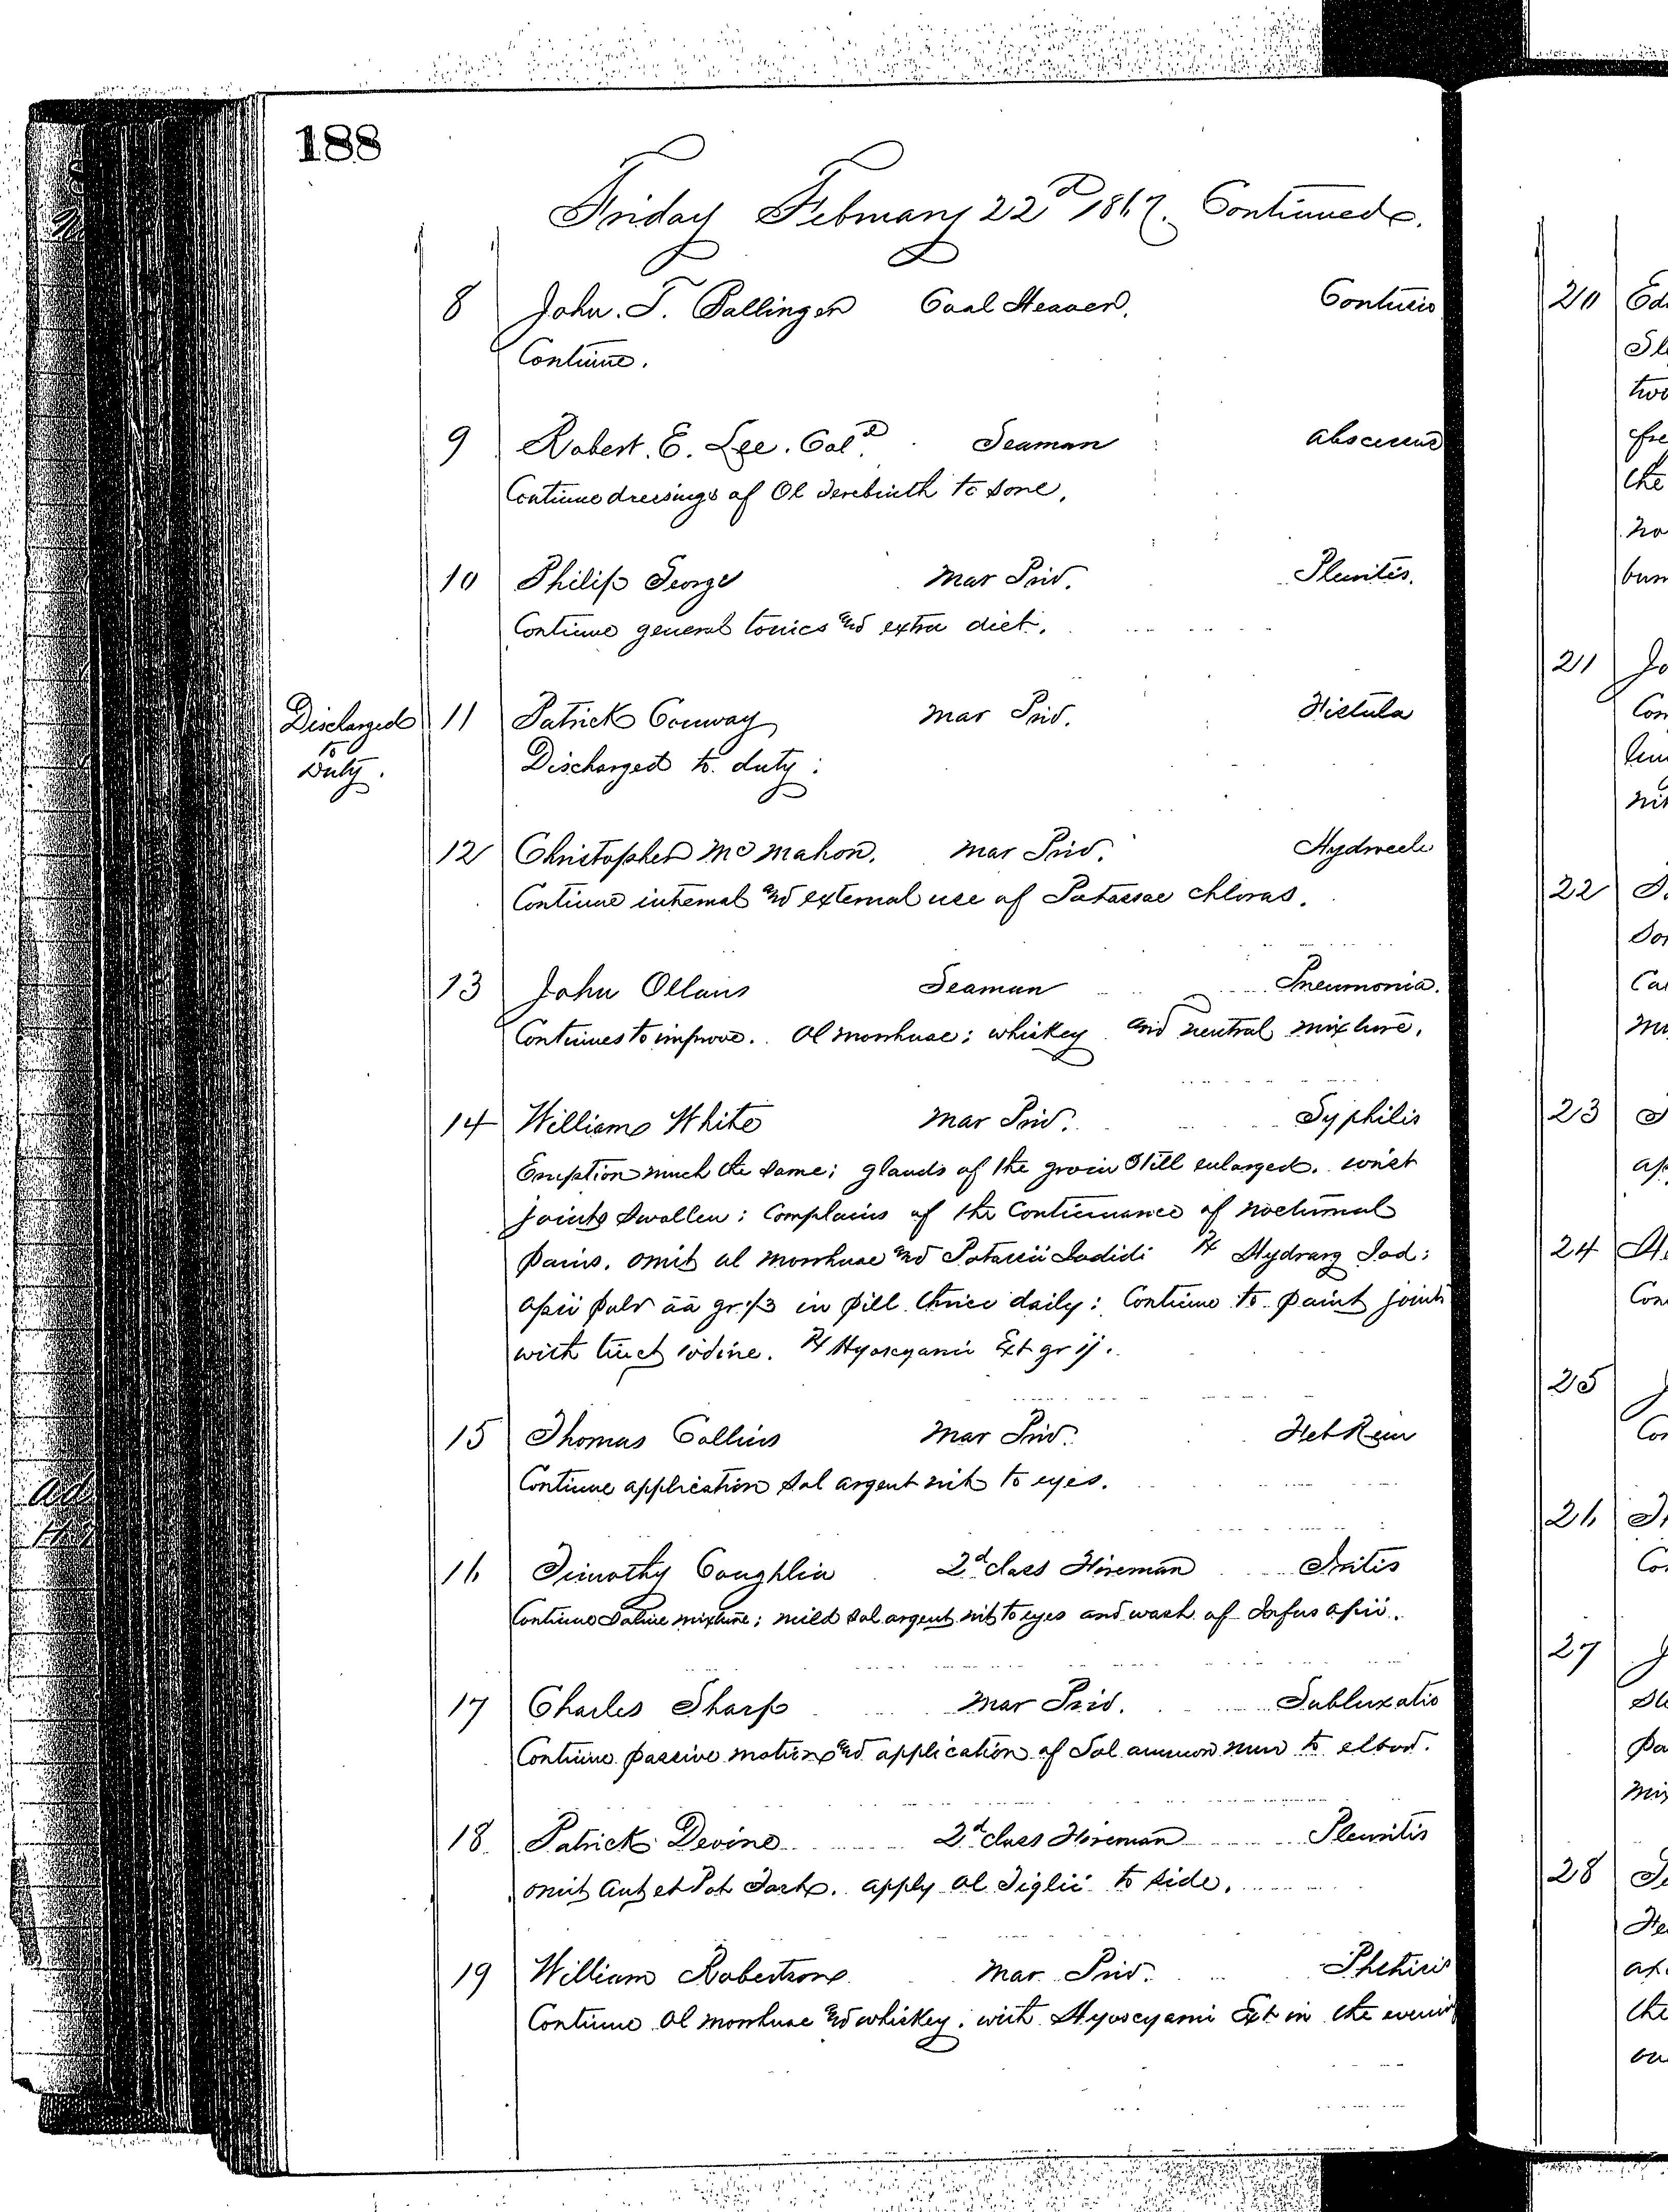 188
Friday February 22d 1867. Continued.
8 John. T. Ballinger Coal Heaver. Contusio
Continue.
9 Robert. E. Lee. Cold. Seaman abscessus
Continue dressings of Ol Terebinth to sore.
10 Philip George Mar Priv. Pleuritis.
Continue general tonics and extra diet.
Discharged to Duty. 11 Patrick Conway Mar Priv. Fistula
Discharged to duty:
12 Christopher McMahon. Mar Priv. Hydrocele
Continue internal and external use of Potassae chloras.
13 John Ollaus Seaman Pneumonia.
Continues to improve. Ol morrhuae; whiskey and neutral mixture.
14 William White Mar Priv. Syphilis
Eruption much the same; glands of the groin still enlarged. wrist
joints swollen: complains of the continuance of nocturnal
pains. omit ol morrhuae and Potassii Iodidi ℞ Hydrarg Iod:
opii pulv āā gr ⅓ in pill thrice daily: Continue to paint joints
with tinct iodine. ℞ Hyoscyami Ext gr ij.
15 Thomas Collins Mar Priv. Feb Rem
Continue application sol argent nit to eyes.
16 Timothy Coughlin 2d class Fireman Iritis
Continue Saline mixture; mild sol argent nit to eyes and wash of Infus opii.
17 Charles Sharp Mar Priv. Subluxatio
Continue passive motion and application of Sol ammon mur to elbow.
18 Patrick Devine 2d class Fireman Pleuritis
omit Ant et Pot Tart. apply ol Tiglii to side.
19 William Robertson Mar Priv. Phthisis
Continue Ol morrhuae and whiskey; with Hyoscyami Ext in the evenin
20 Ed
Sl
two
fre
the
no
bum
21 Jo
Con
lin
nit
22
Sor
Ca
mi
23
ap
24
Con
25
Co
26
Co
27
Sl
pa
mix
28
He
the